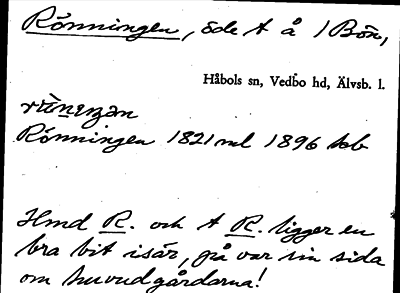 Rönningen, öde t å 1 Bön,
Håbols sn, Vedbo hd, Älvsb. l.
Rönningen 1821 ml 1896 tab
Hmd R. och t R. ligger en
bra bit isär, på var sin sida
om huvudgårdarna!